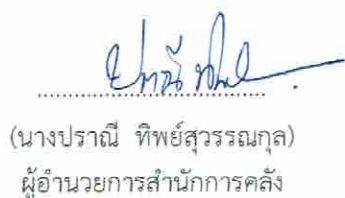 (นางปราณี ทิพย์สุวรรณกุล)
ผู้อำนวยการสำนักการคลัง